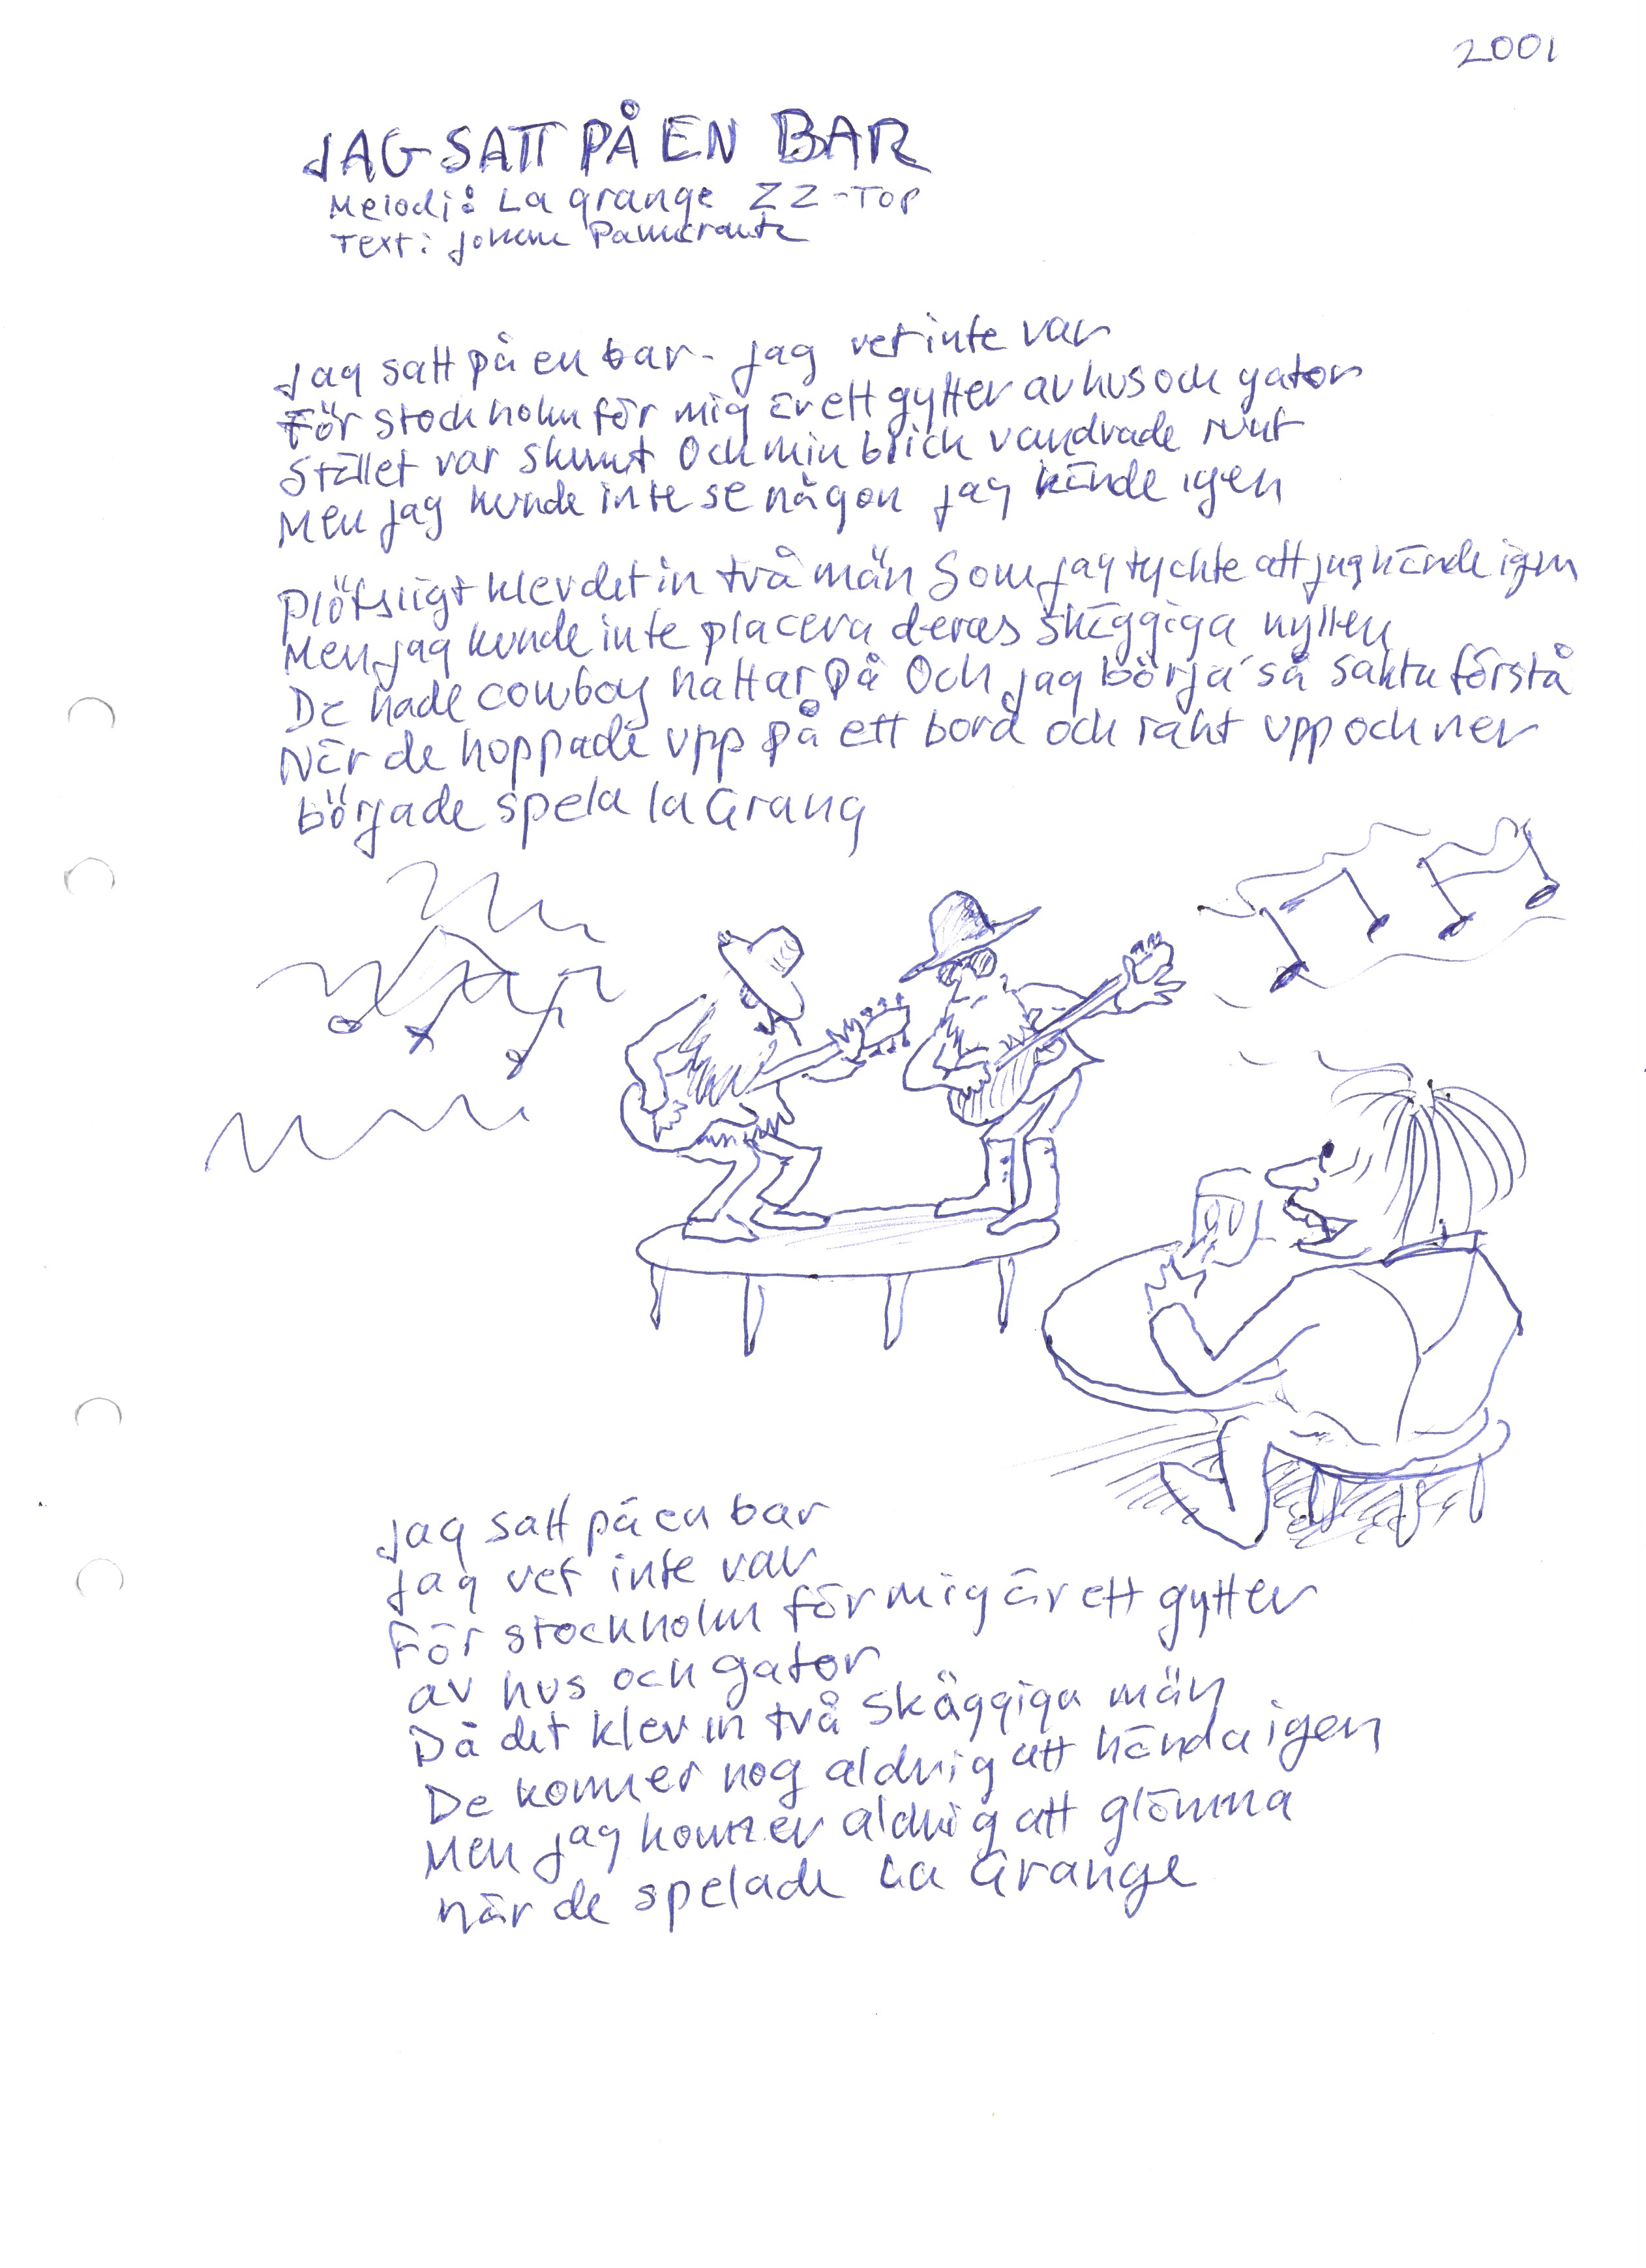 2001
JAG SATT PÅ EN BAR
Melodi: La grange ZZ-Top
Text:
Jag satt på en bar - Jag vet inte var
För stockholm för mig är ett gytter av hus och gator
Stället var skumt Och min blick vandrade runt
Men jag kunde inte se någon jag kände igen
Plötsligt klev det in två män Som jag tyckte att jag kände igen
Men jag kunde inte placera deras skäggiga nyllen
De hade cowboy hattar På Och jag börja' så sakta förstå
När de hoppade upp på ett bord och rakt upp och ner
började spela la Grang
Jag satt på en bar
Jag vet inte var
För stockholm för mig är ett gytter
av hus och gator
Då det klev in två skäggiga män
De kommer nog aldrig att hända igen
Men jag kommer aldrig att glömma
när de spelade La Grange